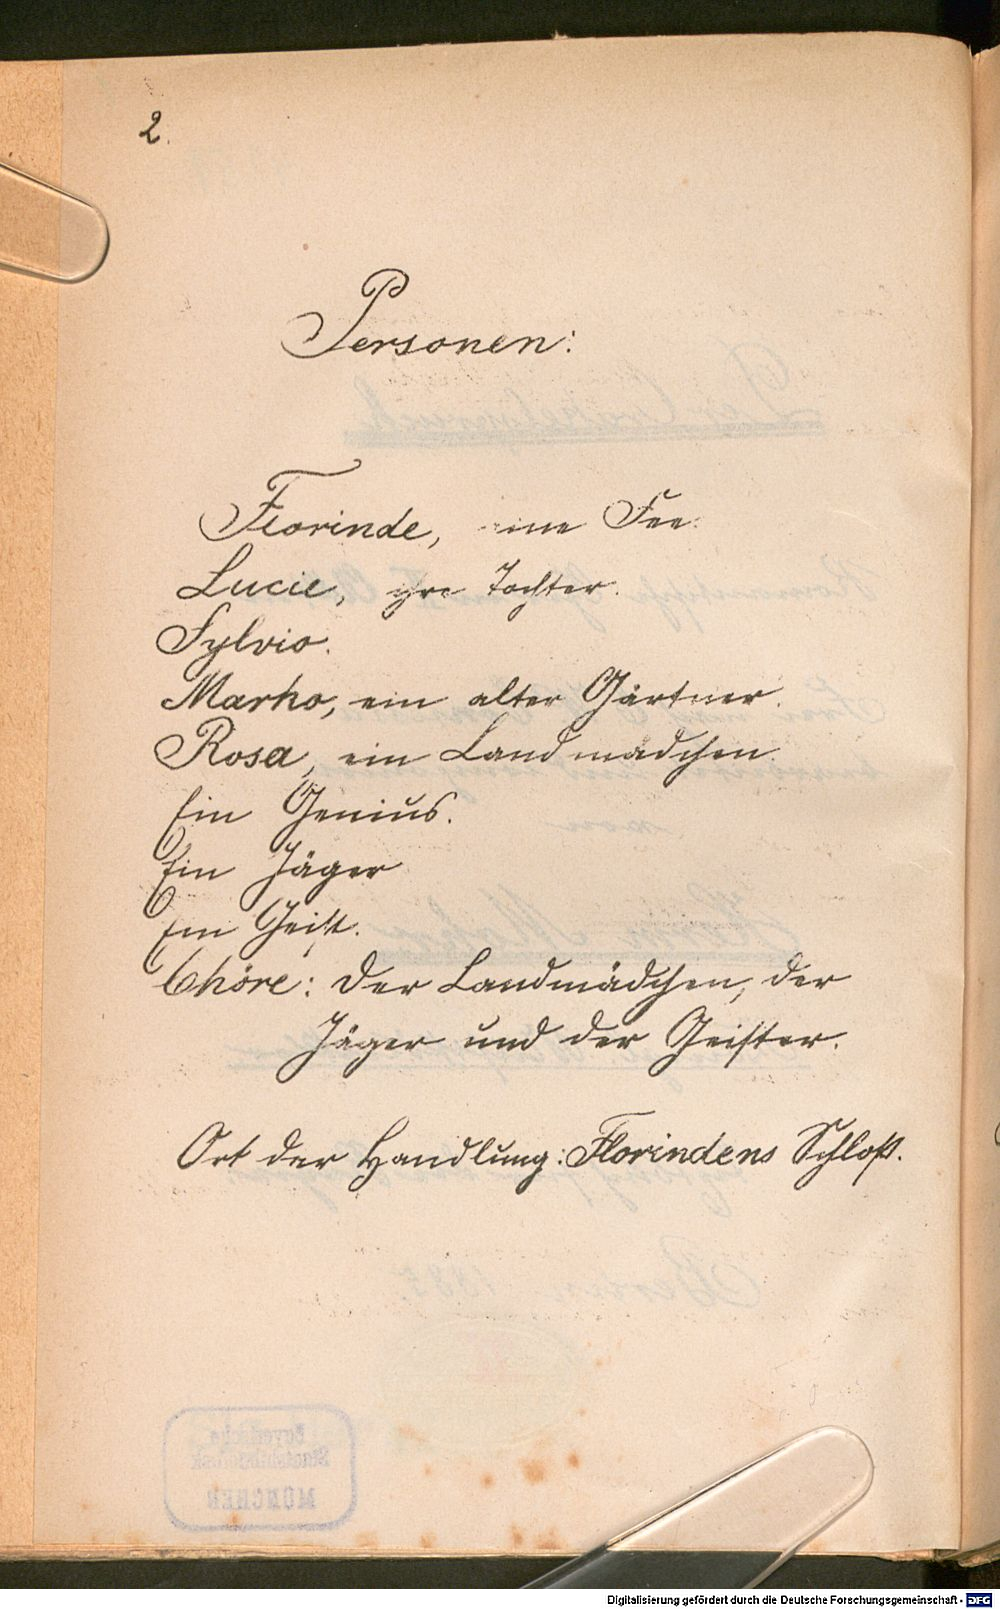 2.
Personen:
Florinde, eine Fee.
Lucie, ihre Tochter.
Sylvio.
Marko, ein alter Gärtner.
Rosa, ein Landmädchen.
Ein Genius.
Ein Jäger
Ein Geist.
Chöre: der Landmädchen, der
Jäger und der Geister.
Ort der Handlung: Florindens Schloß.
Bayerische
Staatsbibliothek
MÜNCHEN
Digitalisierung gefördert durch die Deutsche Forschungsgemeinschaft - DFG